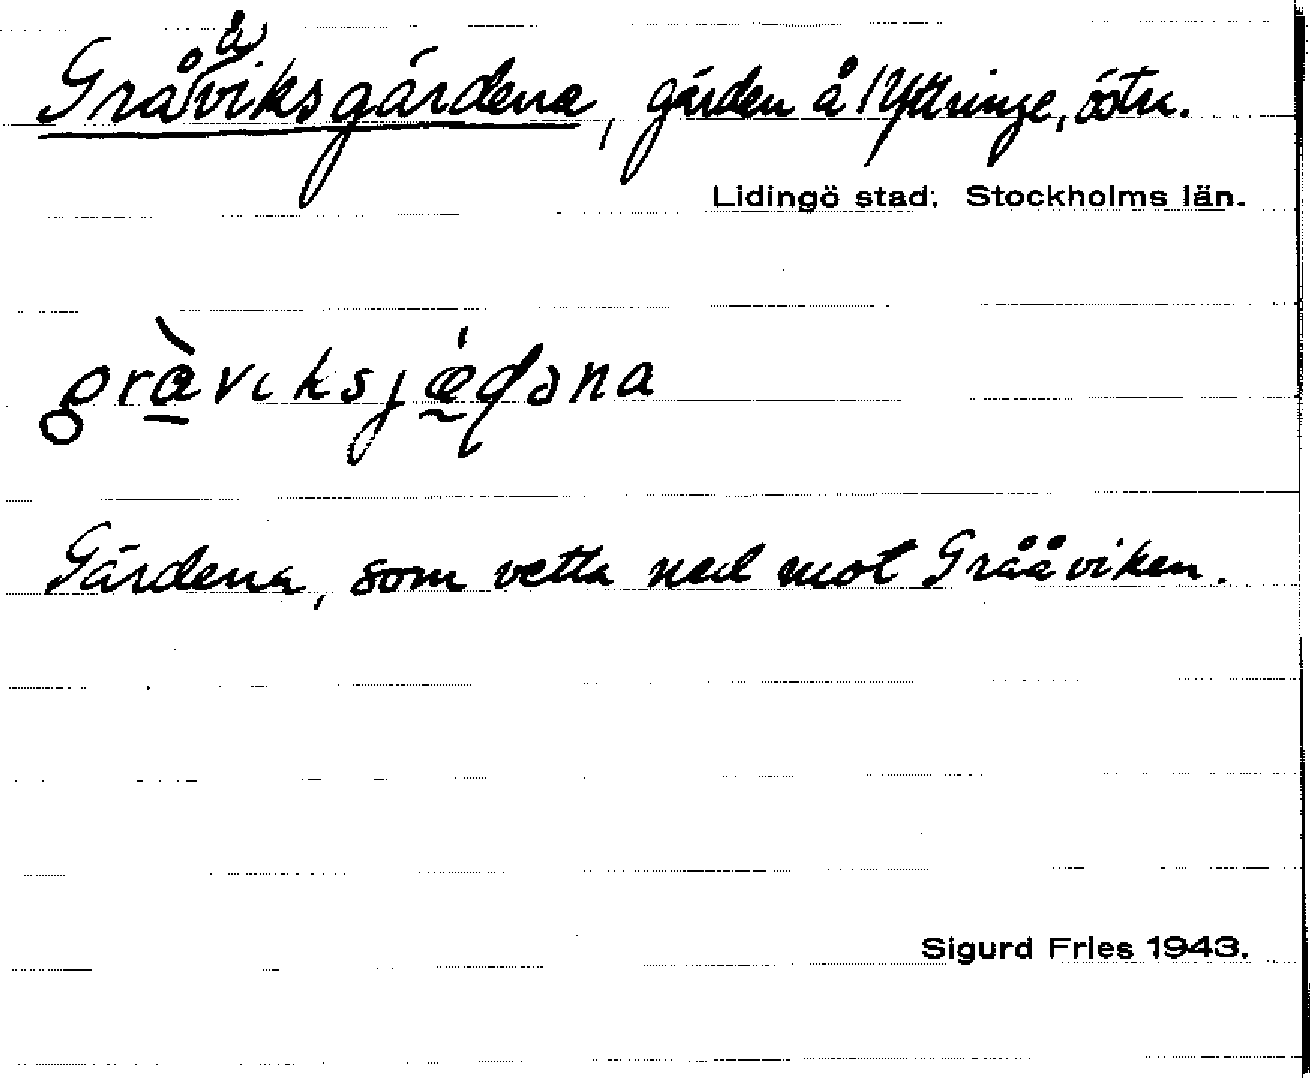 Grååviksgärdena, gärden å Yttringe, östra.
Lidingö stad; Stockholms län.
gràviksjæ̀ɖəna
Gärdena, som vetta ned mot Grååviken.
Sigurd Fries 1943.